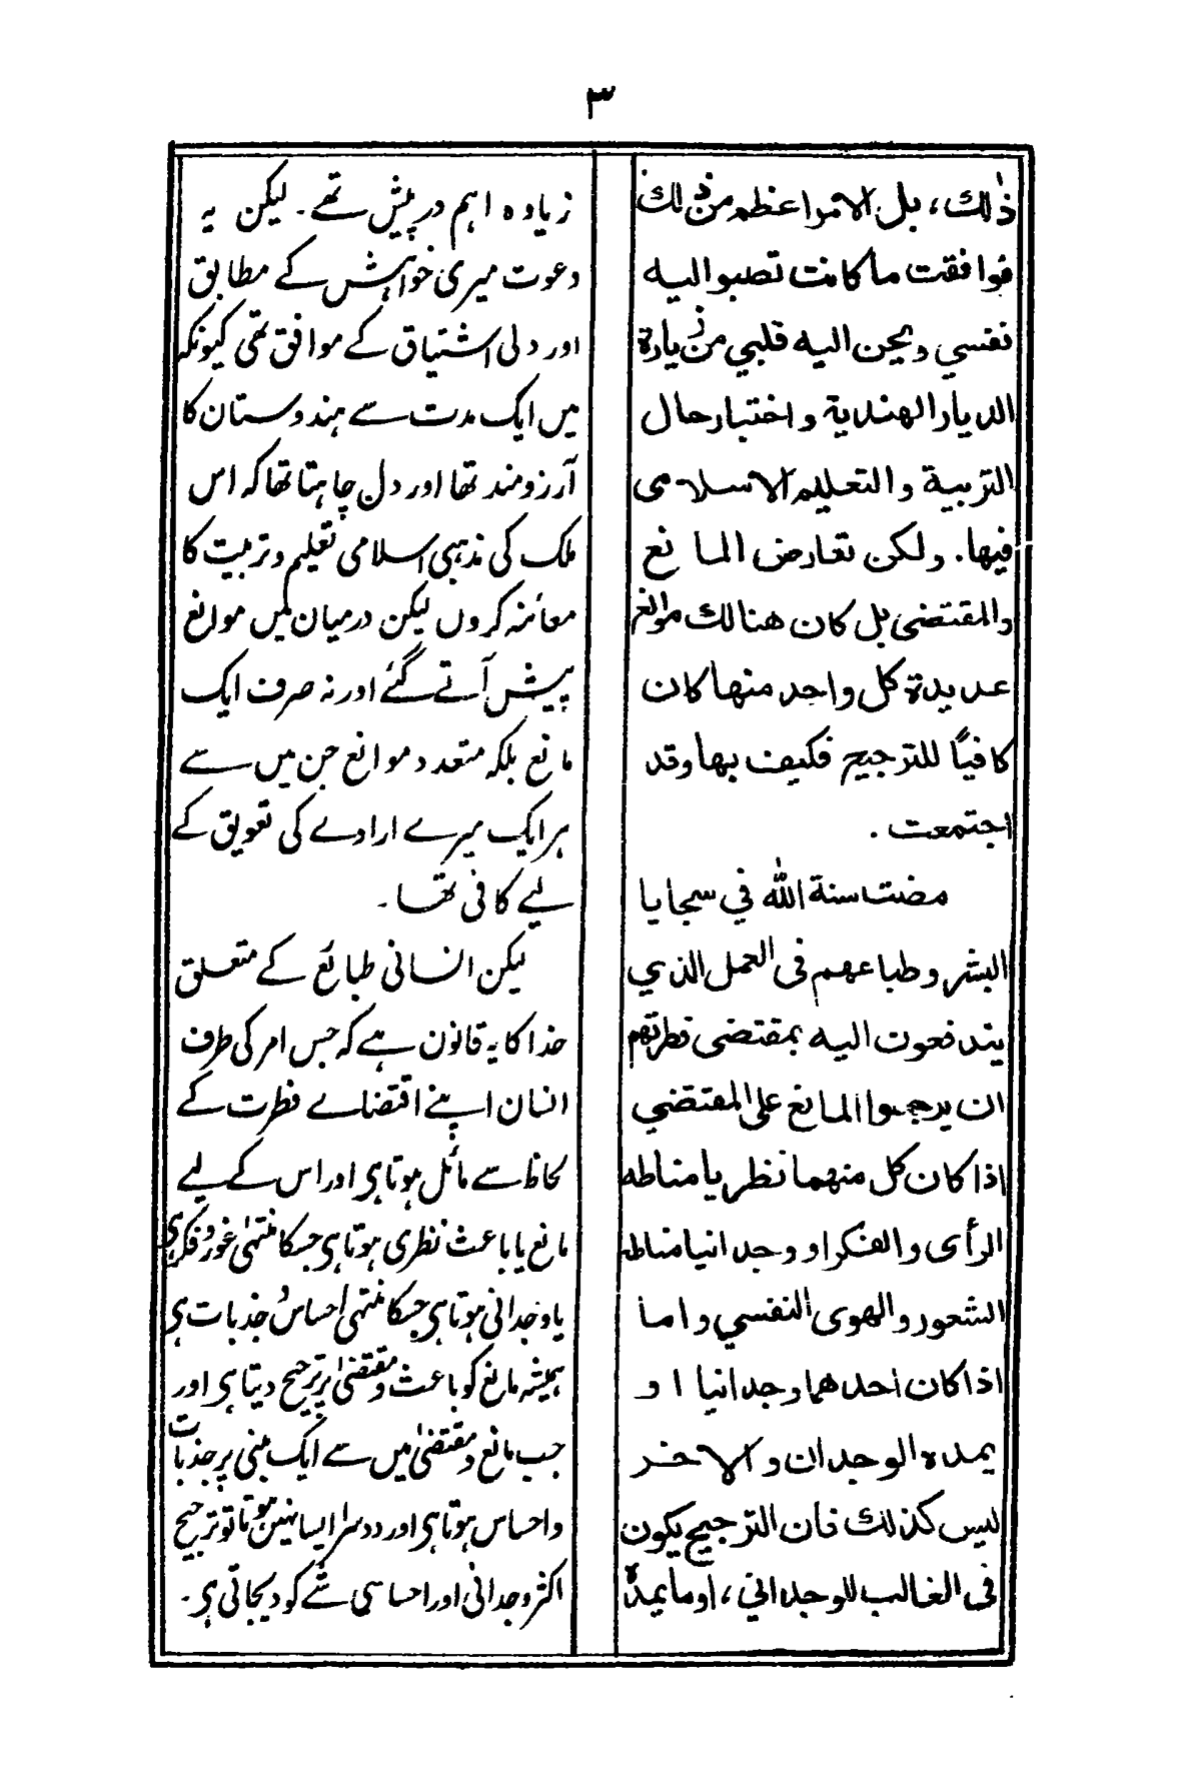 ٣
ذٰلك، بل الامر اعظم من ذٰلك
فوافقت ما كانت تصبو اليه
نفسي ويحن اليه قلبي من زيارة
الديار الهندية واختبار حال
التربية والتعليم الاسلامى
فيها. ولكن تعارض المانع
والمقتضى بل كان هنالك موانع
عديدة كل واحد منها كان
كافيًا للترجيح فكيف بها وقد
اجتمعت.
مضت سنة الله في سجايا
البشر وطباعهم فى العمل الذي
يندفعون اليه بمقتضى فطرتهم
ان يرجحوا المانع على المقتضي
اذا كان كل منهما نظريا مناطه
الرأى والفكر او وجدانيا مناطه
الشعور والهوى النفسي واما
اذا كان احدهما وجدانيا او
يمده الوجدان والاخر
ليس كذلك فان الترجيح يكون
فى الغالب للوجداني، او ما يمدّه
زیادہ اہم درپیش تھے۔ لیکن یہ
دعوت میری خواہش کے مطابق
اور دلی اشتیاق کے موافق تھی کیونکہ
میں ایک مدت سے ہندوستان کا
آرزومند تھا اور دل چاہتا تھا کہ اس
ملک کی مذہبی اسلامی تعلیم و تربیت کا
معائنہ کروں لیکن درمیان میں موانع
پیش آتے گئے اور نہ صرف ایک
مانع بلکہ متعدد موانع جن میں سے
ہر ایک میرے ارادے کی تعویق کے
لیے کافی تھا۔
لیکن انسانی طبائع کے متعلق
خدا کا یہ قانون ہے کہ جس امر کی طرف
انسان اپنے اقتضاے فطرت کے
لحاظ سے مائل ہوتا ہی اور اس کے لیے
مانع یا باعث نظری ہوتا ہی جسکا منتہیٰ غور و فکر ہی
یا وجدانی ہوتا ہی جسکا منتہیٰ احساس و جذبات ہی
ہمیشہ مانع کو باعث و مقتضیٰ پر ترجیح دیتا ہی اور
جب مانع و مقتضیٰ میں سے ایک مبنی پر جذبات
و احساس ہوتا ہی اور دوسرا ایسا نہیں ہوتا تو ترجیح
اکثر وجدانی اور احساسی شے کو دیجاتی ہی۔